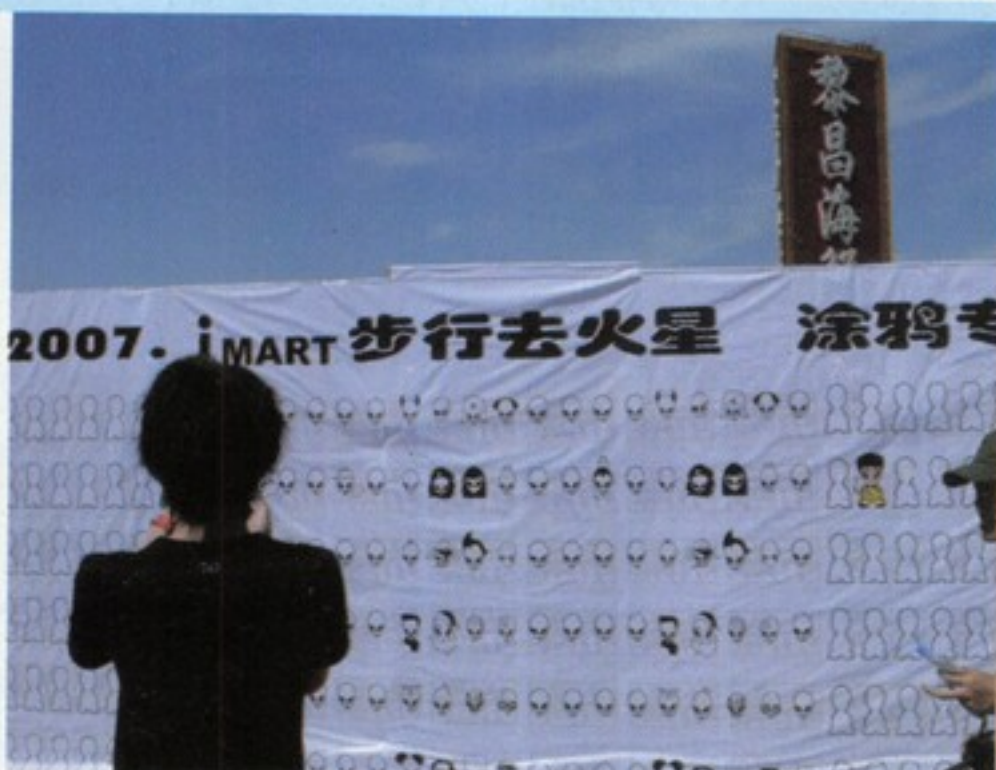 黎昌海
2007. iMART 步行去火星 涂鸦专